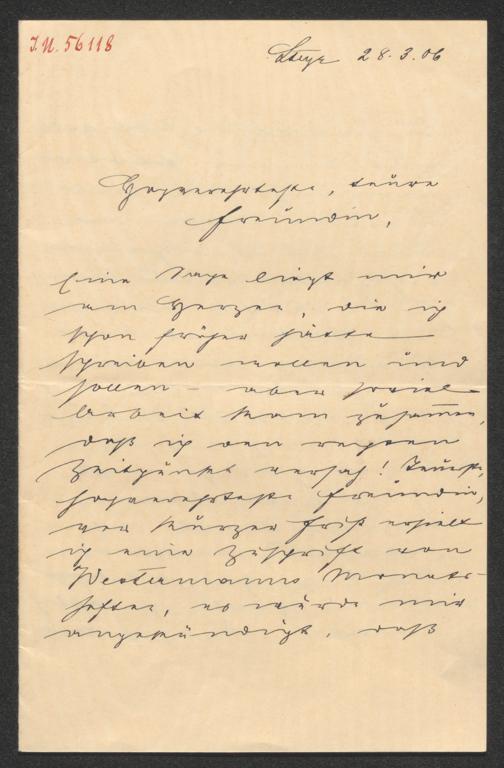 I.N. 56118
Steyr 28.3.06
Hochverehrteste, teure
Freundin,
Eine Sache liegt mir
am Herzen, die ich
schon früher hätte
schreiben wollen und
sollen – aber soviel
Arbeit kam zusam̅en,
daß ich den rechten
Zeitpunkt versah! Teuerste,
hochverehrteste Freundin,
vor kurzer Frist erhielt
ich eine Zuschrift von
Westermanns Monats-
heften, es würde mir
angekündigt, daß